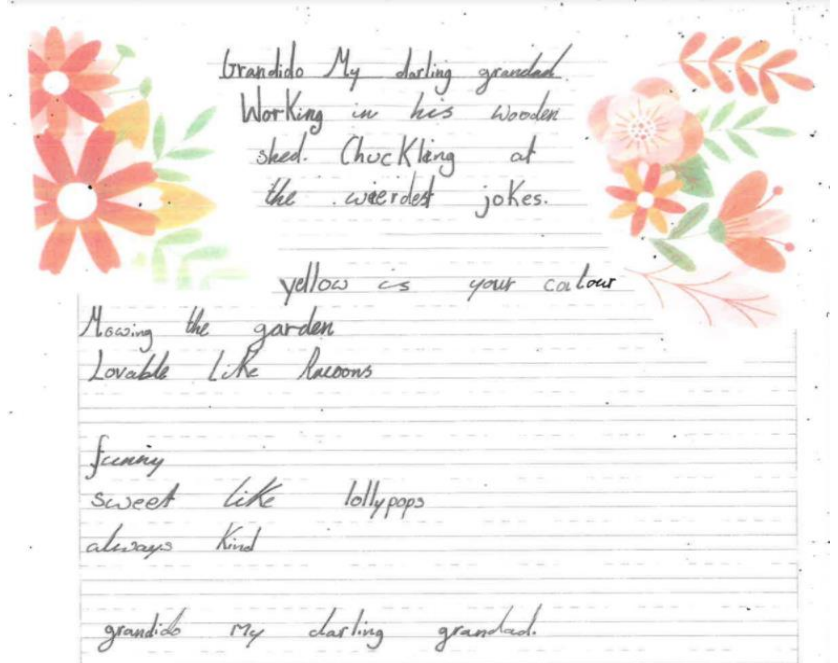 Grandido My darling grandad
Working in his wooden
shed. Chuckling at
the wierdest jokes.
yellow is your colour
Mowing the garden
Lovable Like Racoons
funny
sweet like lollypops
always Kind
grandido My darling grandad.